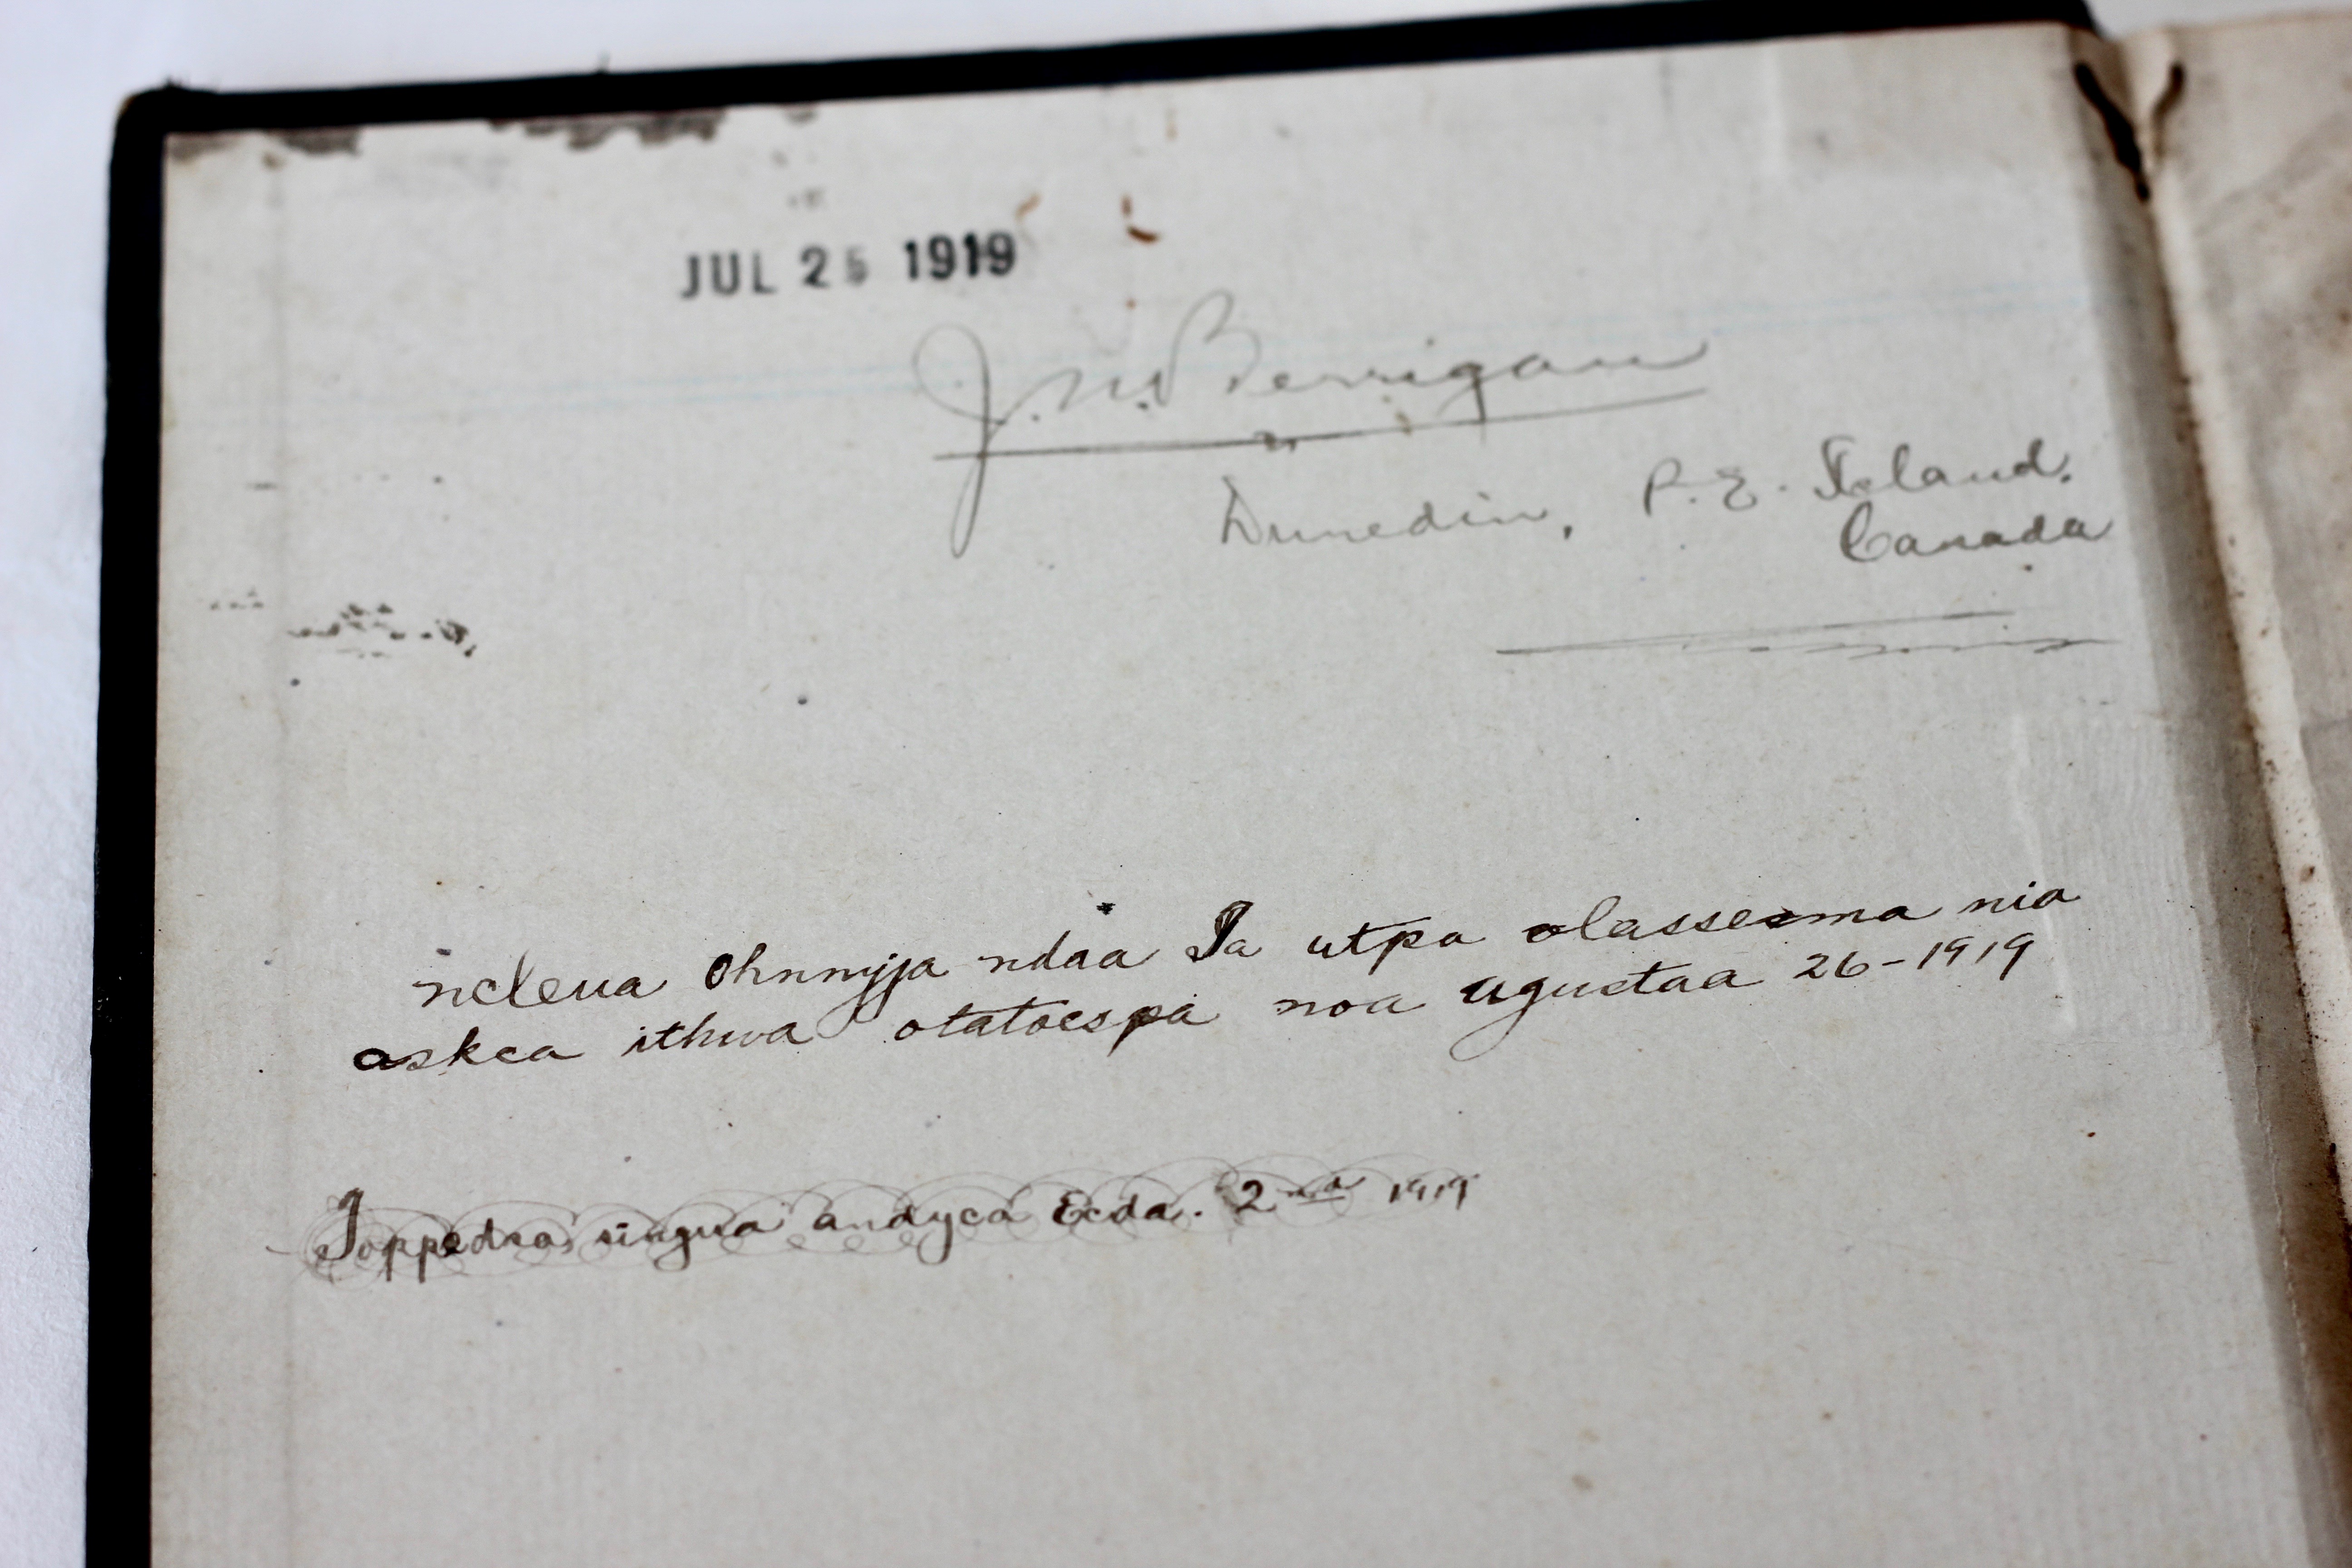 JUL 25 1919
J. M. Berrigan
Dunedin, P. E. Island.
Canada
ncleua Ohnnyja ndaa Ia utpa olassesma nia
askca ithwa otatoespa noa ugustaa 26-1919
Ioppedsa singua andyca Ecda. 2nd 1919